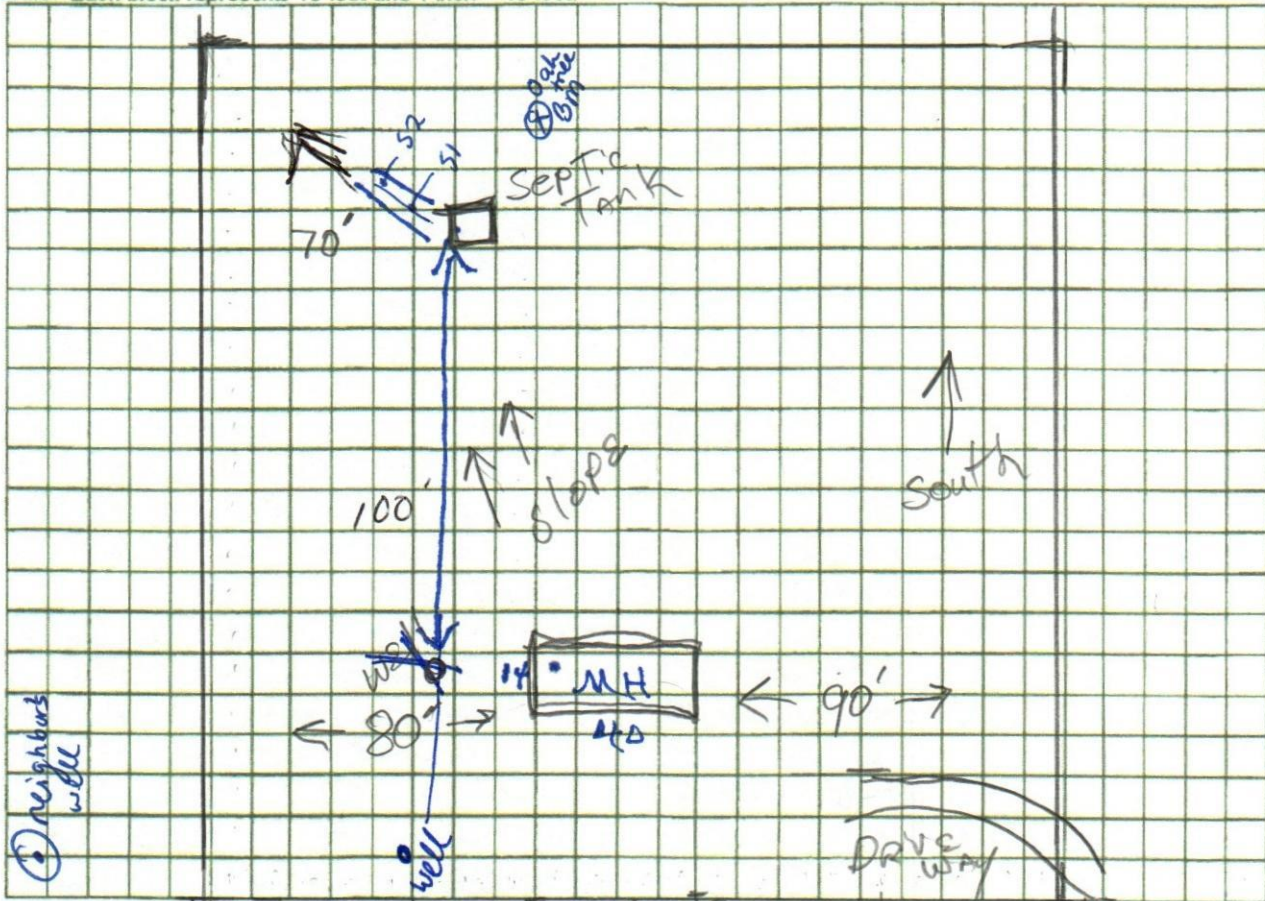 Oak
tree
BM
S2
S1
Septic
Tank
70'
Slope
South
100'
well
14
MH
40
80'
90'
neighbors
well
well
DRIVE
WAY